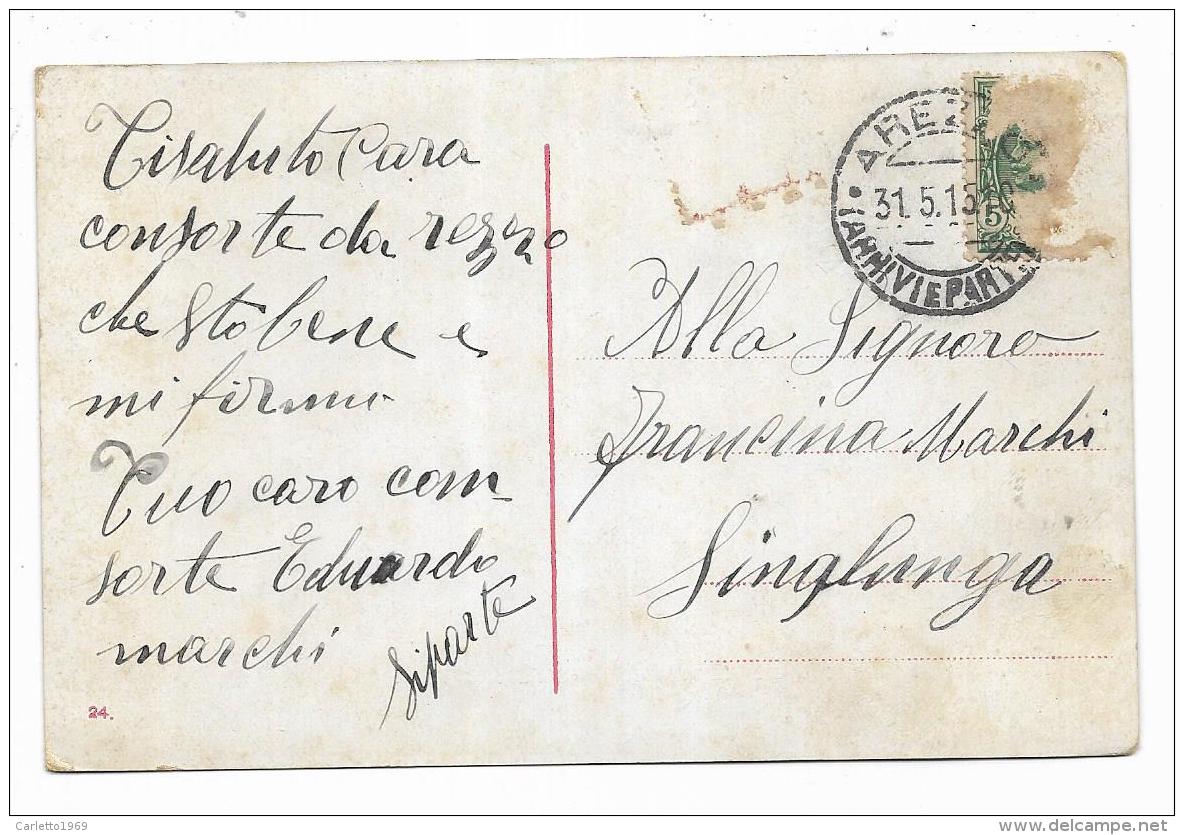 Tisaluto Cara
consorte da rezzo
che sto bene e
mi firmo
Tuo caro com-
sorte Eduardo
marchi
Siparte
24.
AREZ
31.5.15
(ARRIVI E PARTE
5
Alla Signora
Francina Marchi
Sinalunga
Carletto1969
delcampe.net